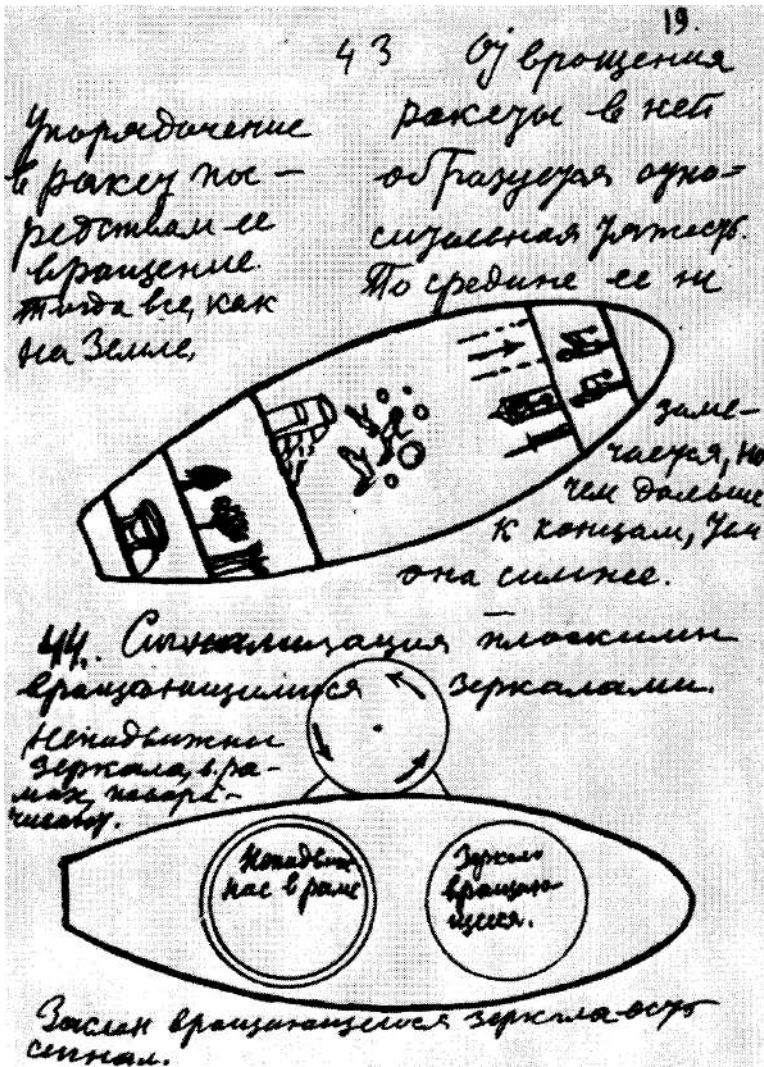 19.
43
Упорядочение
в ракету по-
редствам ее
вращение.
Тогда все, как
на Земле,
От вращения
ракеты в ней
образуется отно-
сительная тяжесть.
По средине ее не
заме-
чается, но
чем дальше
к концам, тем
она сильнее.
44. Сигнализация плоскими
вращающимися зеркалами.
Неподвижны
зеркала, в ра-
мах,
Неподвиж
ное в раме
Зеркало
вращаю-
щееся.
Заслон вращающегося зеркала есть
сигнал.